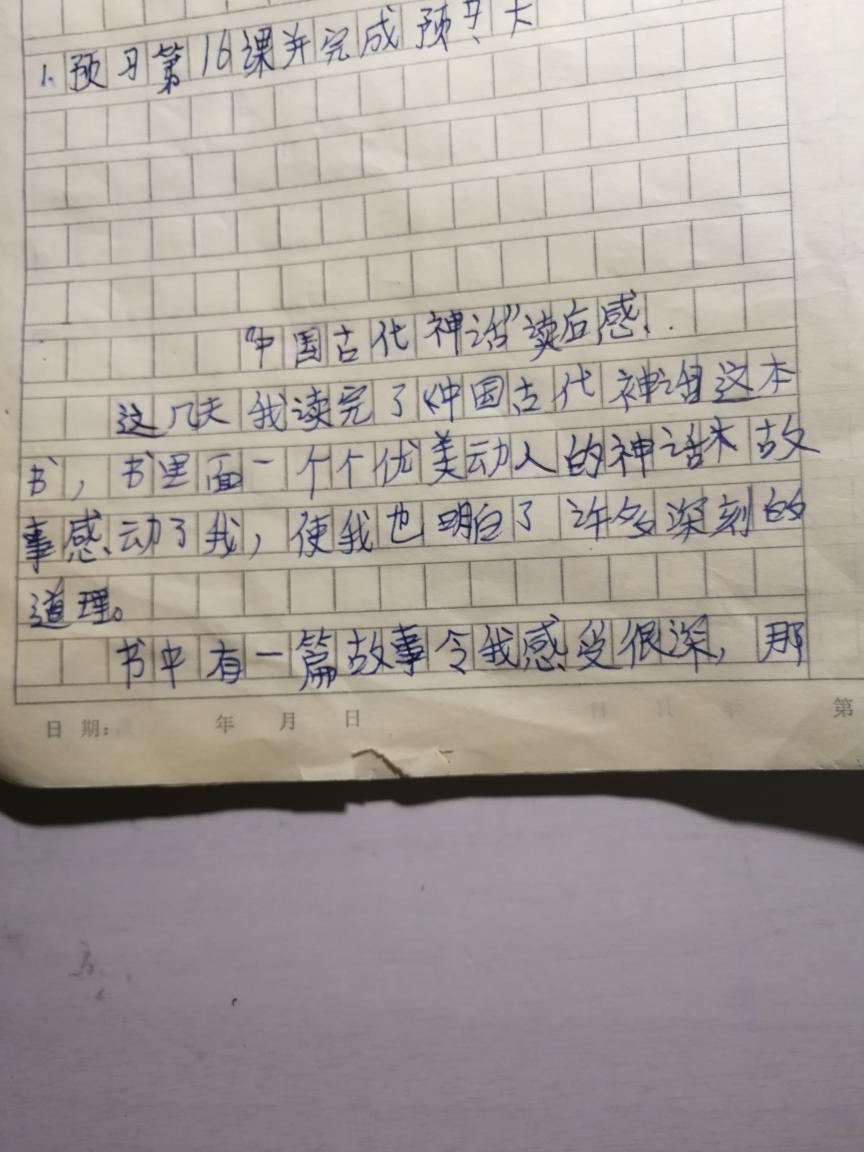 1.预习第16课并完成预习
"中国古代神话"读后感
这几天我读完了《中国古代神话》这本
书，书里面一个个优美动人的神话木故
事感动了我，使我也明白了许多深刻的
道理。
书中有一篇故事令我感受很深，那
日 期： 年 月 日
第